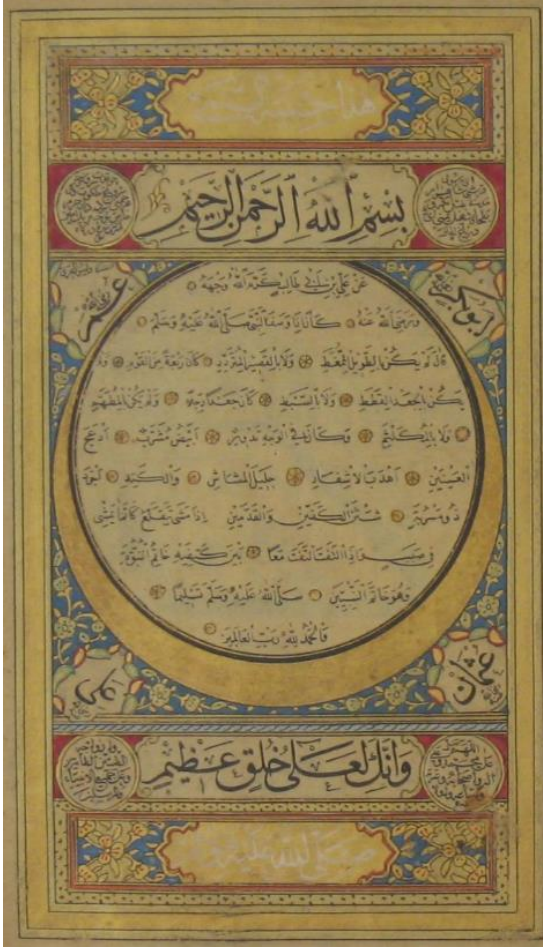 هذا حلية شريفة
بسم الله الرحمن الرحيم
ابو بكر
عمر
عن علي بن ابي طالب كرم الله وجهه
ورضي الله عنه كان اذا وصف النبي صلى الله عليه وسلم
قال لم يكن بالطويل الممغط ولا بالقصير المتردد كان ربعة من القوم ولم
يكن بالجعد القطط ولا بالسبط كان جعدا رجلا ولم يكن بالمطهم
ولا بالمكلثم وكان في الوجه تدوير ابيض مشرب ادعج
العينين اهدب الاشفار جليل المشاش والكتد اجرد
ذو مسربة شثن الكفين والقدمين اذا مشى تقلع كانما يمشي
في صبب واذا التفت التفت معا بين كتفيه خاتم النبوة
وهو خاتم النبيين صلى الله عليه وسلم تسليما
فالحمد لله رب العالمين
عثمان
علي
وانك لعلى خلق عظيم
صلى الله عليه